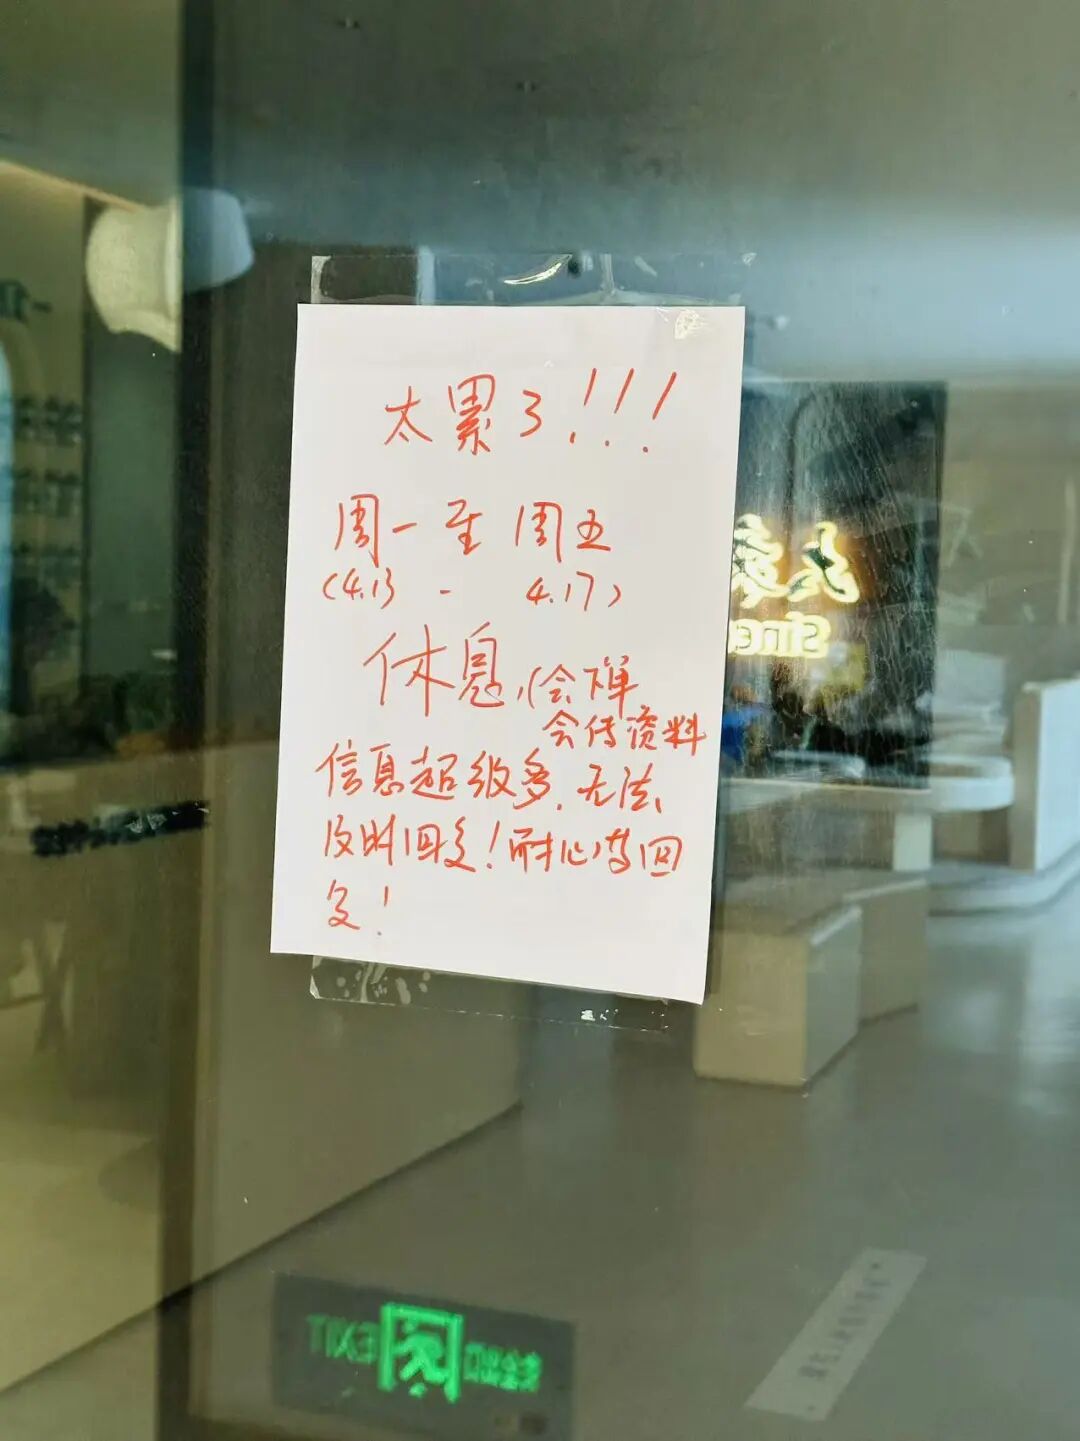 太累了!!!
周一至周五
(4.13 - 4.17)
休息,(会下单
会传资料
信息超级多,无法
及时回复!耐心等回
复!
since
EXIT
安全出口